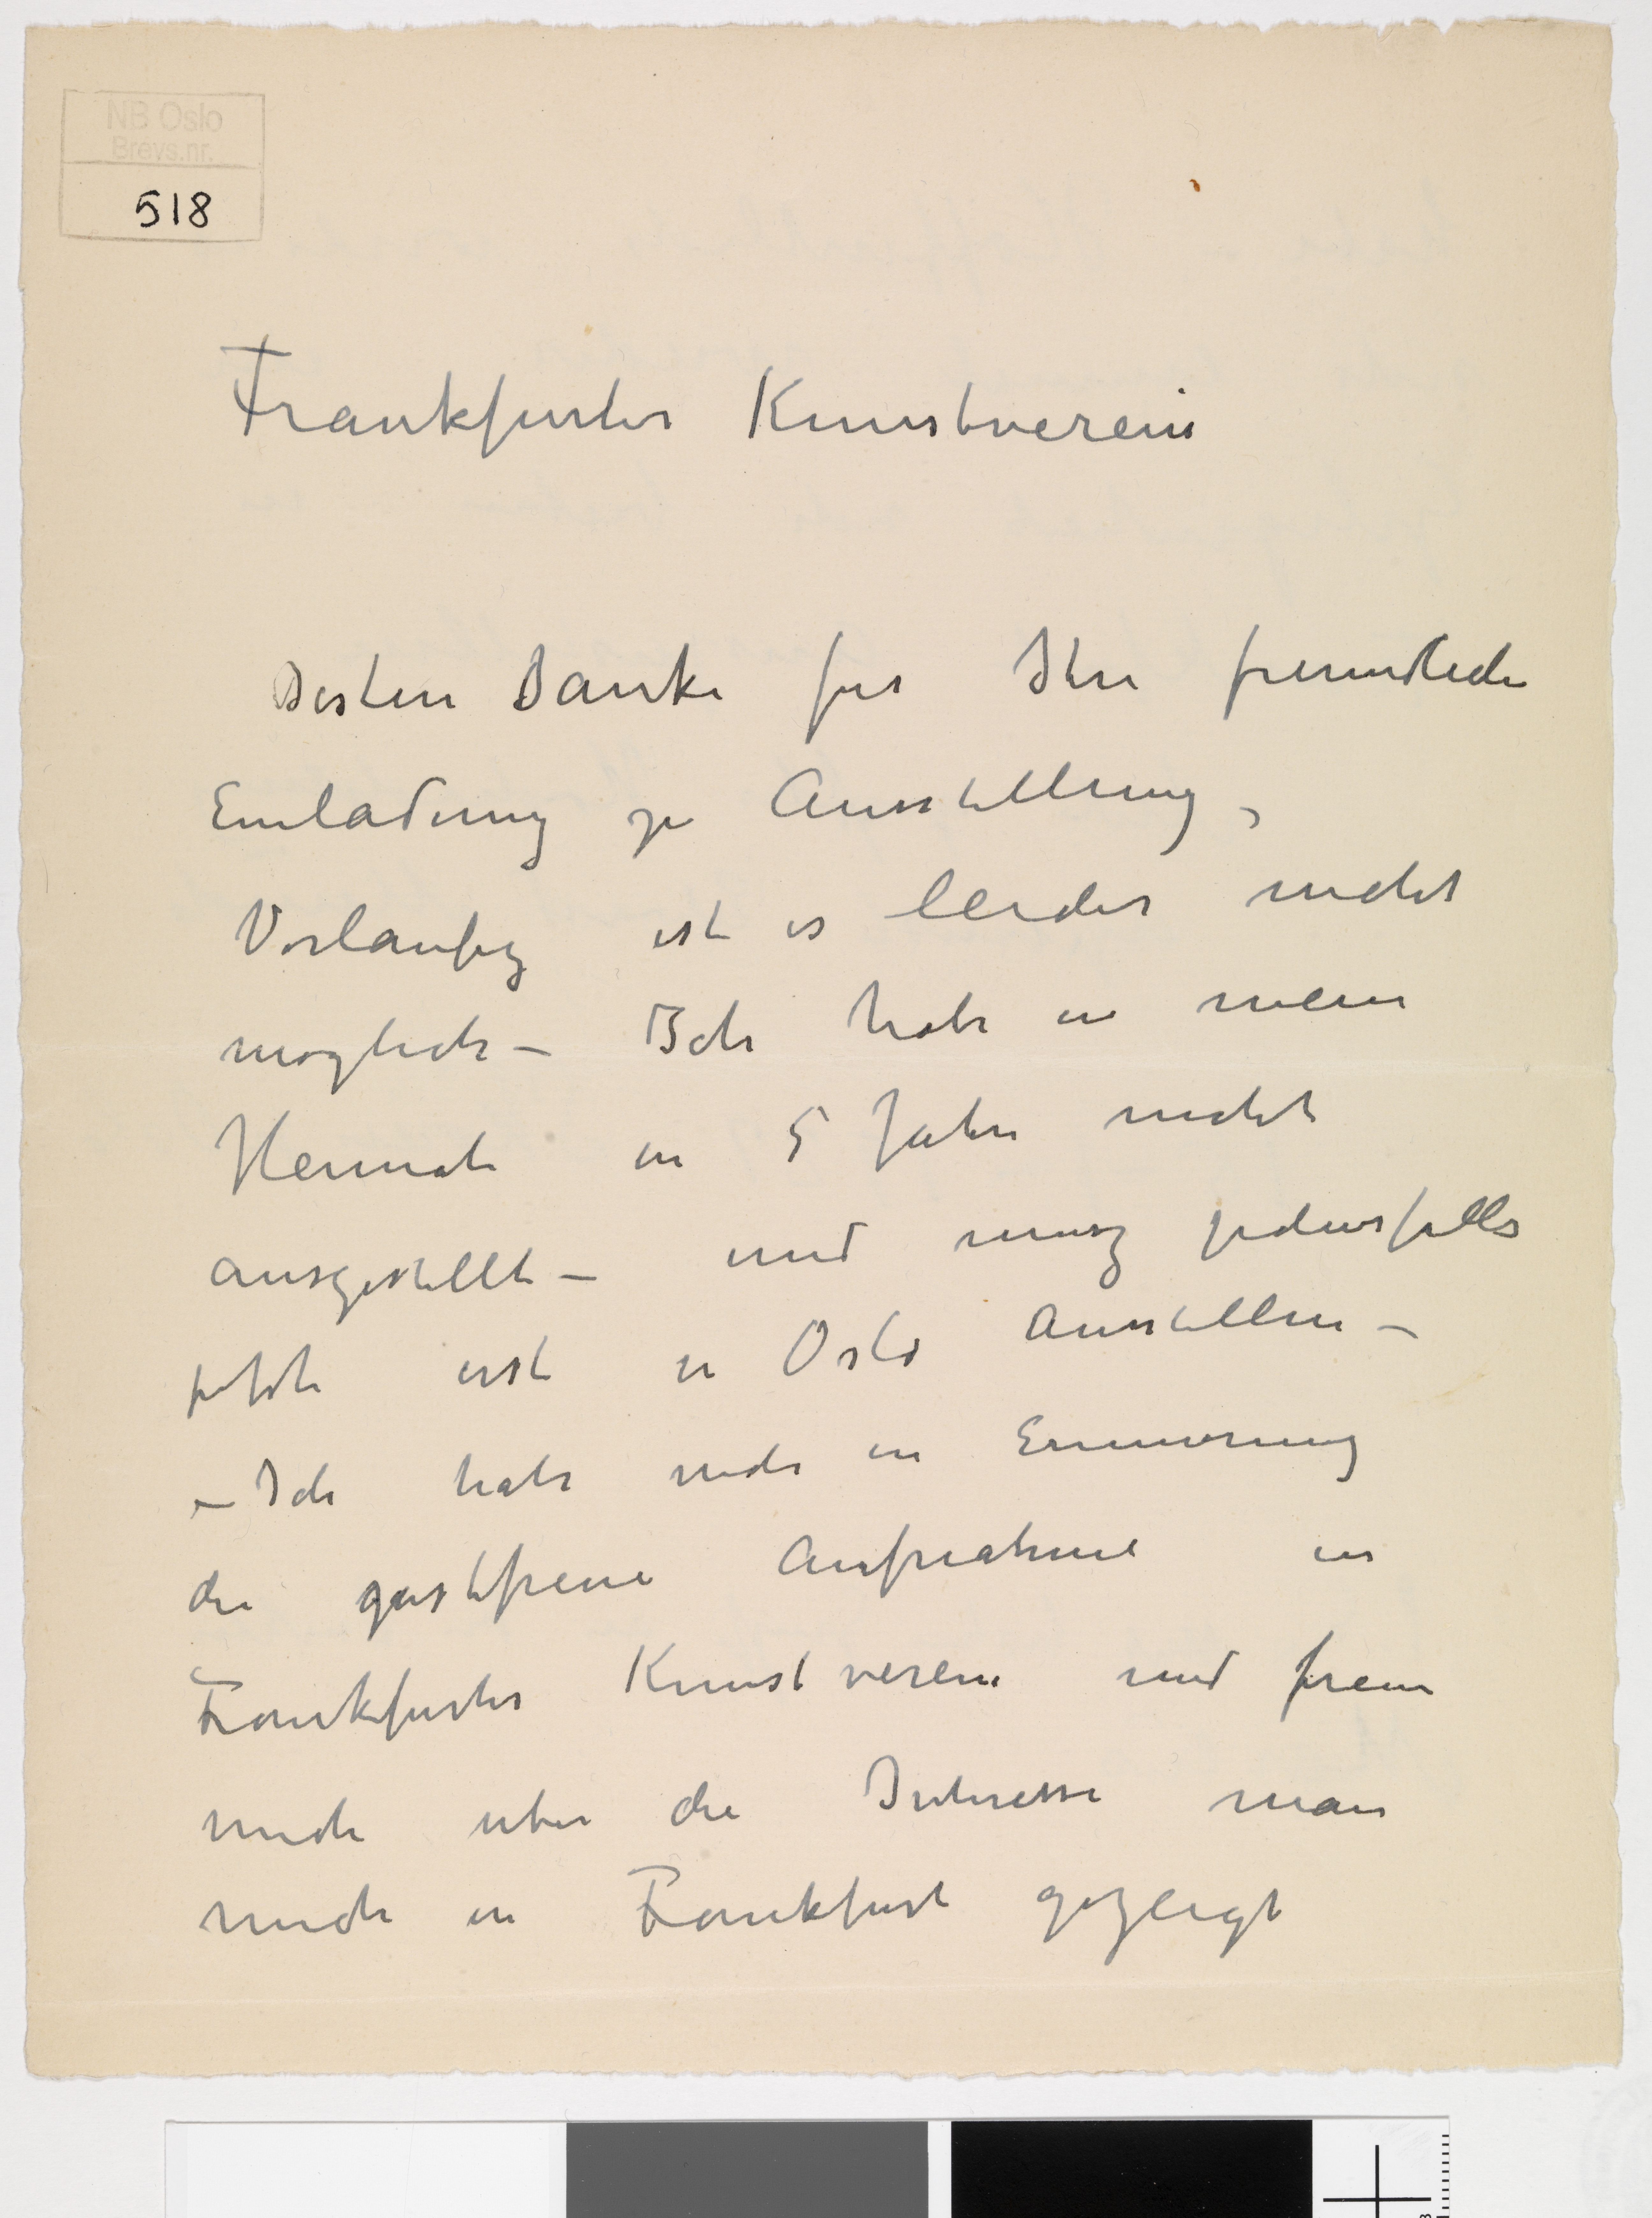 NB Oslo
Brevs.nr.
518
Frankfurter Kunstverein
Besten Danke fur Ihre freundliche
Einladung zu Ausstellung,
Vorlaufig ist es leider nicht
moglich – Ich habe in meine
Heimat in 5 Jahre nicht
ausgestellt – und musz jedensfalls
jetzt erst in Oslo Ausstellen –
– Ich habe noch in Erinnerung
die gastfreie Aufnahme in
Frankfurter Kunstverein und freue
mich uber die Interesse man
mich in Frankfurt gezeigt